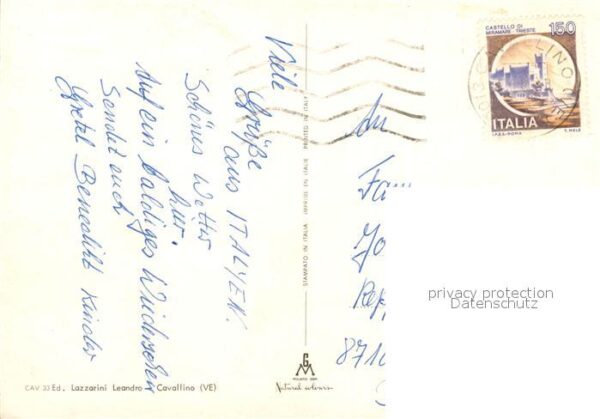 Viele Grüße
aus ITALIEN.
Schönes Wetter
hier.
Auf ein baldiges Wiedersehen
Sendet euch
Gretel Benedikt Kinder
CAV 33 Ed. Lazzarini Leandro - Cavallino (VE)
STAMPATO IN ITALIA IMPRIMÉ EN ITALIE PRINTED IN ITALY
GM
Natural colours
CASTELLO DI
MIRAMARE TRIESTE
150
ITALIA
I.P.Z.S. ROMA
An
Fa
871
privacy protection
Datenschutz